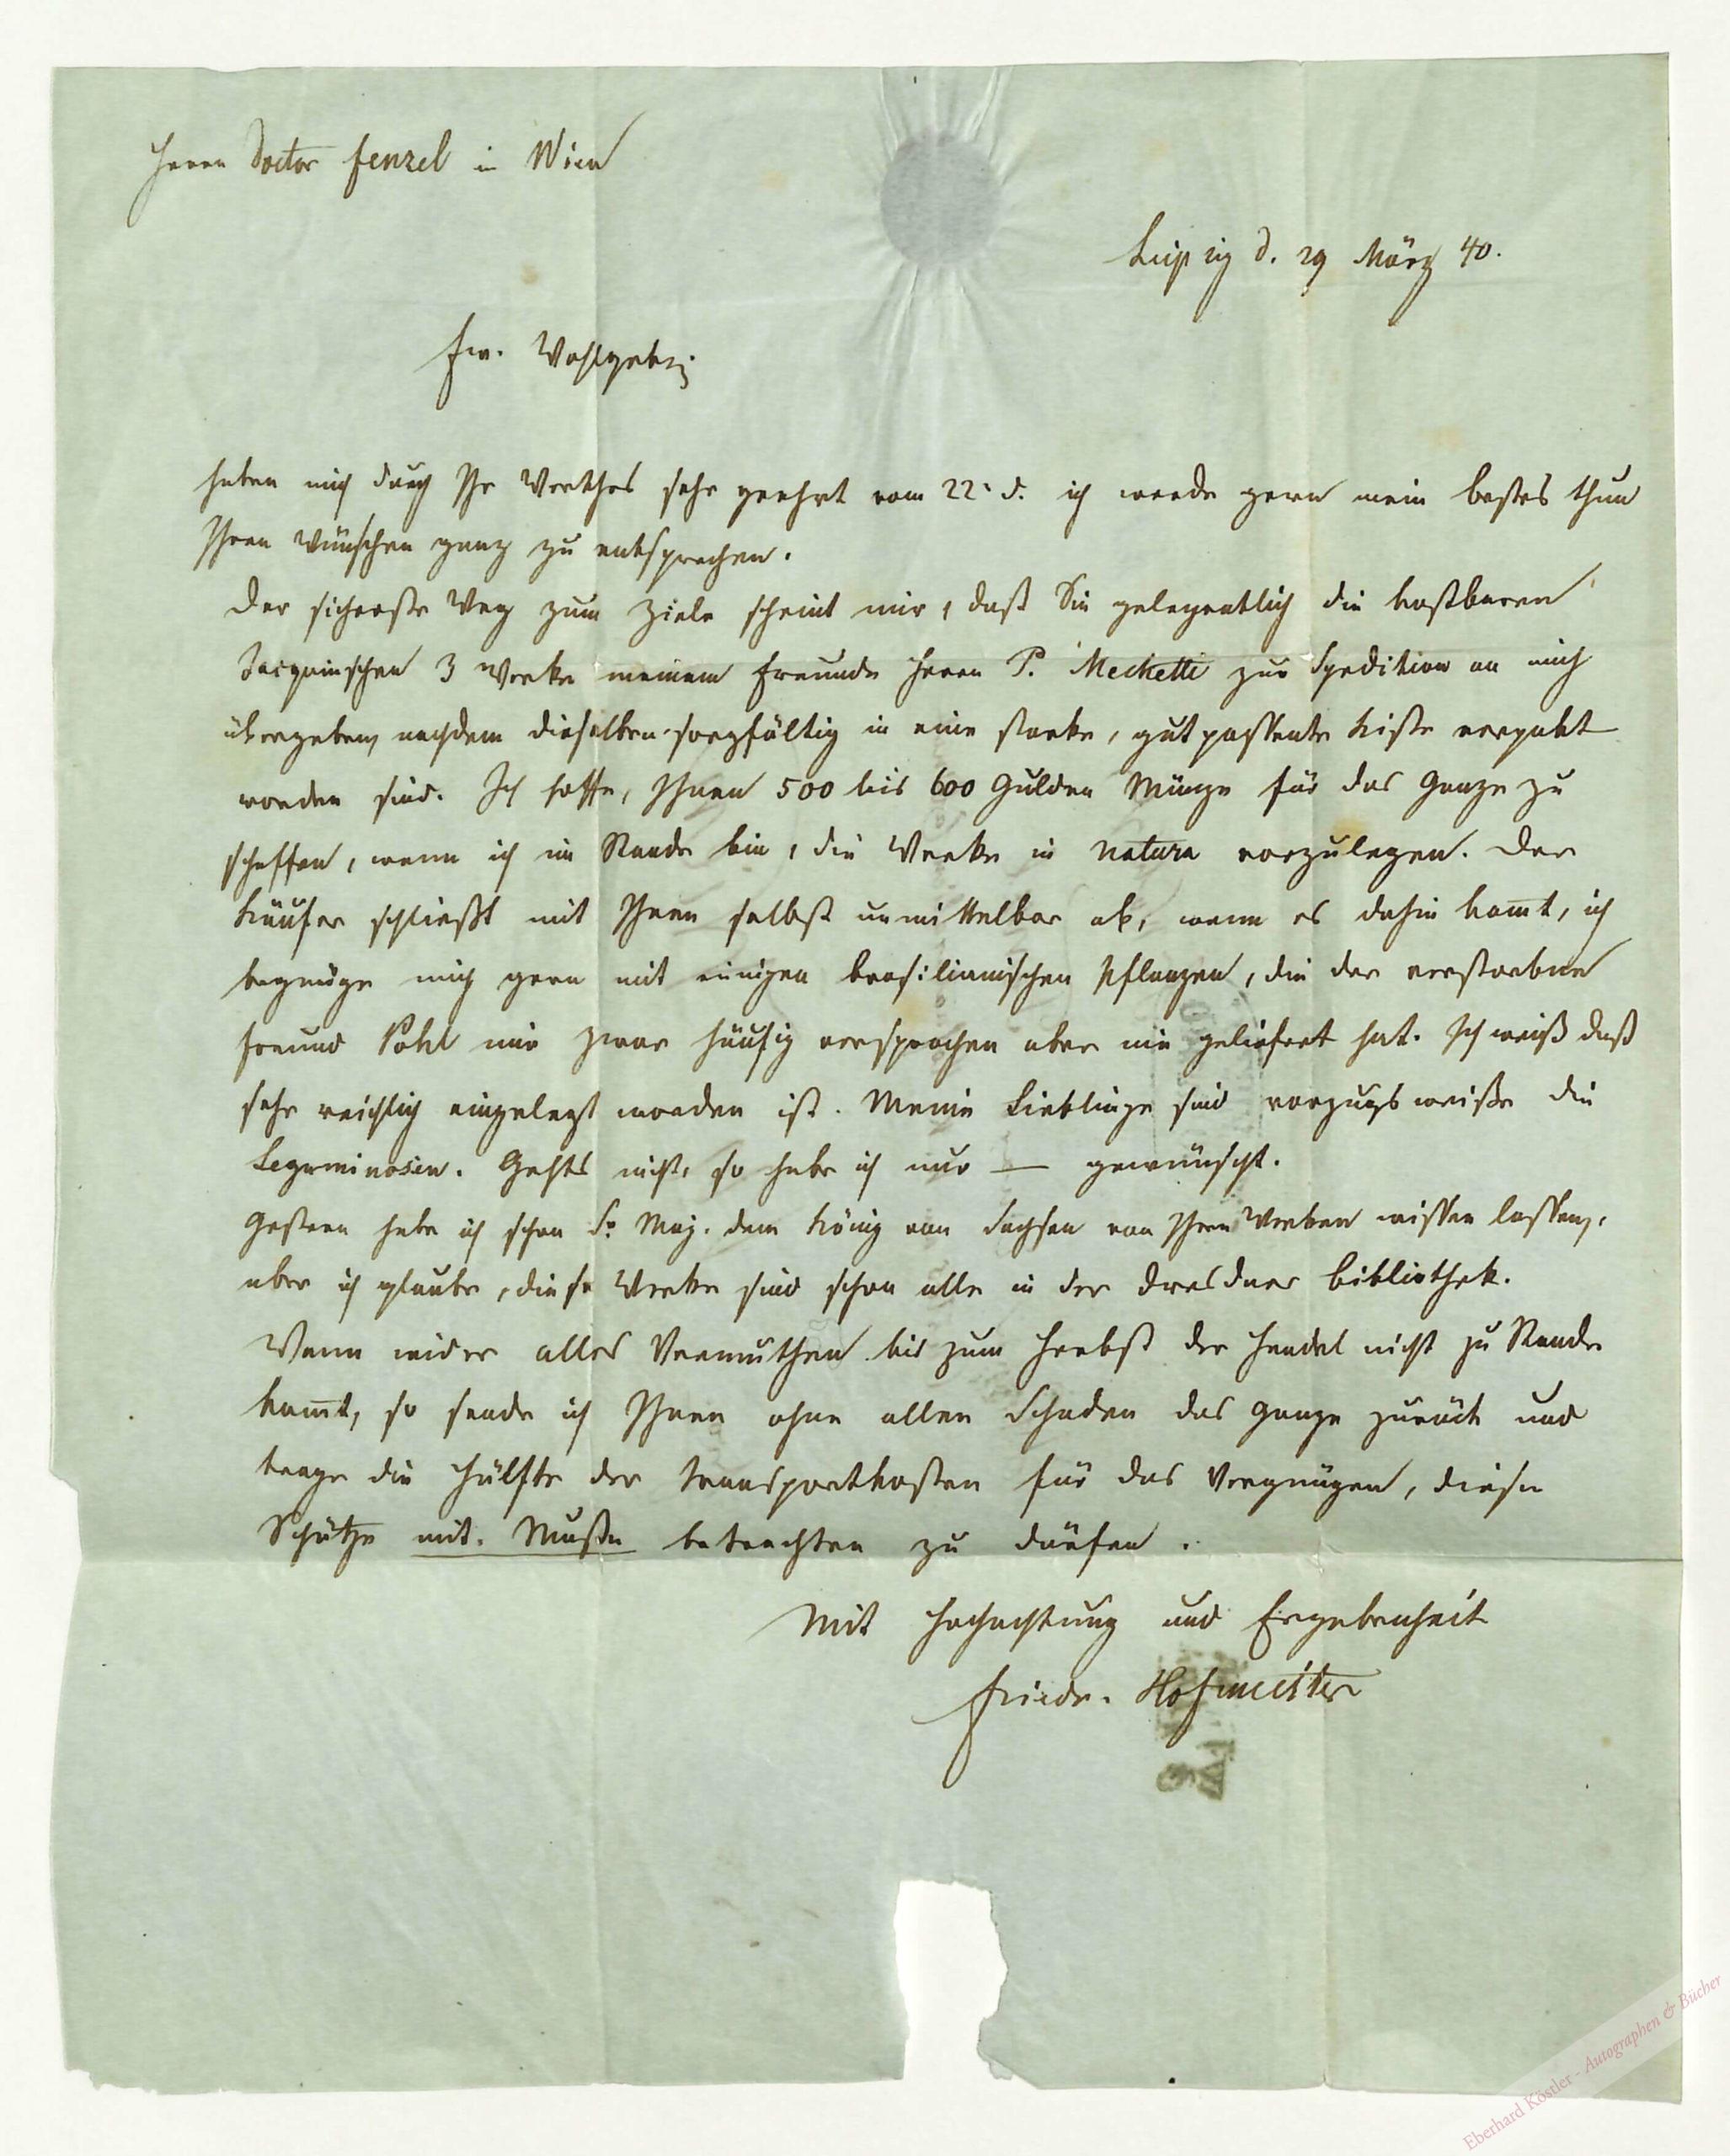 Herrn Doctor Fenzel in Wien
Leipzig d. 29 März 40.
Ew. Wohlgeb.
haben mich durch Ihr Werthes sehr geehrt vom 22. d. ich werde gern mein bestes thun
Ihren Wünschen ganz zu entsprechen.
Der sicherste Weg zum Ziele scheint mir, daß Sie gelegentlich die kostbaren
Jacquinschen 3 Werke meinem Freunde Herrn P. Mechetti zur Spedition an mich
übergeben, nachdem dieselben sorgfältig in eine starke, gut passente Kiste verpakt
worden sind. Ich hoffe, Ihnen 500 bis 600 Gulden Münze für das Ganze zu
schaffen, wenn ich im Stande bin, die Werke in natura vorzulegen. Der
Käufer schließt mit Ihnen selbst unmittelbar ab, wenn es dahin kommt, ich
begnüge mich gern mit einigen brasilianischen Pflanzen, die der verstorbne
Freund Pohl mir zwar häufig versprochen aber nie geliefert hat. Ich weiß daß
sehr reichlich eingelegt worden ist. Meine Lieblinge sind vorzugsweiße die
Leguminosen. Gehts nicht, so habe ich nur — gewünscht.
Gestern habe ich schon Sr. Maj. dem König von Sachsen von Ihren Werken wissen lassen,
aber ich glaube, diese Werke sind schon alle in der Dresdner Bibliothek.
Wenn wider alles Vermuthen bis zum Herbst der Handel nicht zu Stande
kommt, so sende ich Ihnen ohne allen Schaden das Ganze zurück und
trage die Hälfte der Transportkosten für das Vergnügen, diese
Schätze mit Muße betrachten zu dürfen.
Mit Hochachtung und Ergebenheit
Friedr. Hofmeister
Eberhard Köstler - Autographen & Bücher